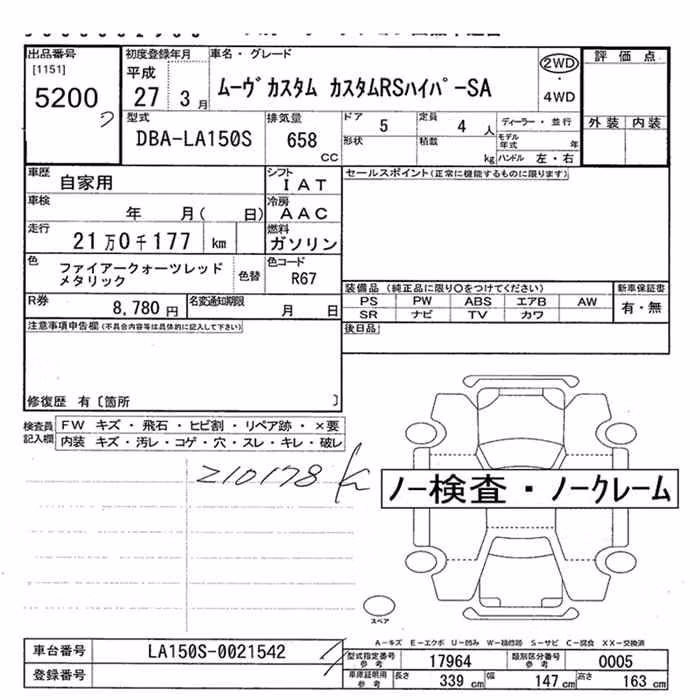 出品番号
[1151]
5200
初度登録年月
平成
27 3月
車名・グレード
ムーヴカスタム カスタムRSハイパーSA
2WD
・
4WD
評価点
外装 内装
型式
DBA-LA150S
排気量
658
CC
ドア
5
定員
4 人
ディーラー・並行
形状
積載
kg
モデル年式 年
ハンドル 左・右
車歴
自家用
シフト
IAT
車検
年 月( 日)
冷房
AAC
走行
21万0千177 km
燃料
ガソリン
色
ファイアークォーツレッド
メタリック
色替
色コード
R67
R券
8,780 円
名変通知期限
月 日
セールスポイント(正常に機能するものに限ります)
装備品 (純正品に限り○をつけてください)
PS PW ABS エアB AW
SR ナビ TV カワ
新車保証書
有・無
後日品
注意事項申告欄(不具合内容等は具体的に記入して下さい)
修復歴 有〔箇所 〕
検査員
記入欄
FW キズ・飛石・ヒビ割・リペア跡・×要
内装 キズ・汚レ・コゲ・穴・スレ・キレ・破レ
210178 km
ノー検査・ノークレーム
スペア
A-キズ E-エクボ U-凹み W-補修跡 S-サビ C-腐食 XX-交換済
車台番号
LA150S-0021542
登録番号
型式指定番号
参考
17964
類別区分番号
参考
0005
車庫証明用
参考
長さ
339 cm
幅
147 cm
高さ
163 cm